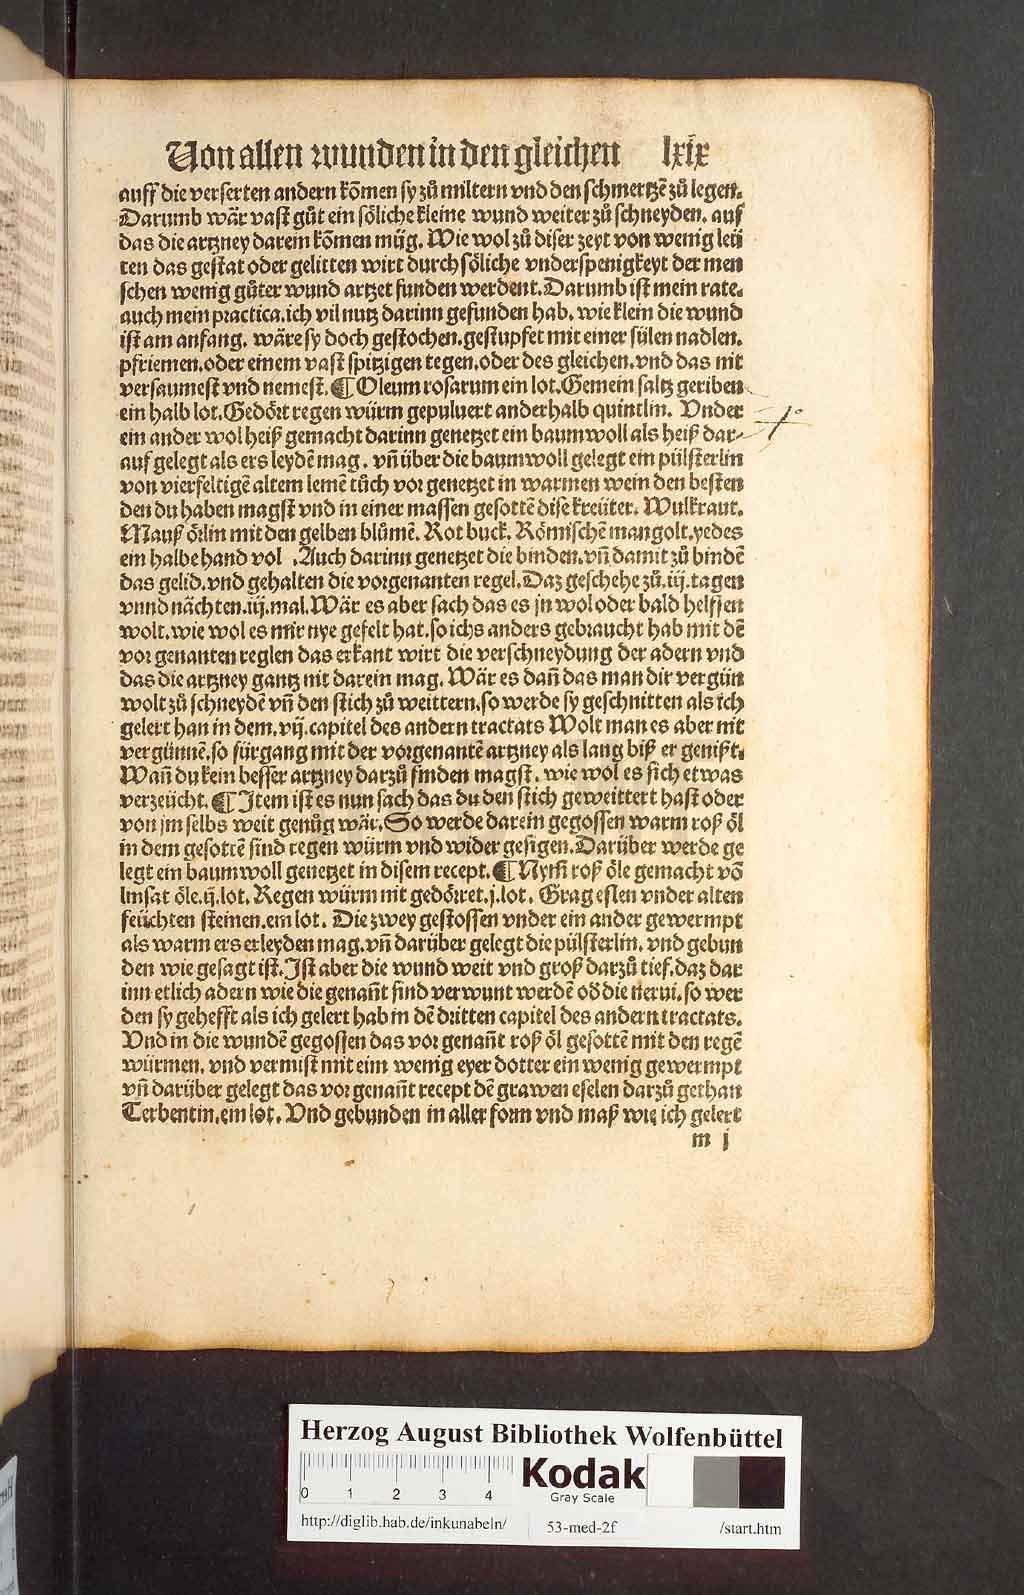 Von allen wunden in den gleichen lxix
auff die verserten andern kōmen sy zů miltern vnd den schmertzē zů legen.
Darumb wär vast gůt ein söliche kleine wund weiter zů schneyden. auf
das die artzney darein kōmen müg. Wie wol zů diser zeyt von wenig leü
ten das gestat oder gelitten wirt durch söliche vnderspenigkeyt der men
schen wenig gůter wund artzet funden werdent. Darumb ist mein rate.
auch mein practica. ich vil nutz darinn gefunden hab. wie klein die wund
ist am anfang. wäre sy doch gestochen. gestupfet mit einer sülen nadlen.
pfriemen. oder einem vast spitzigen tegen. oder des gleichen. vnd das nit
versaumest vnd nemest. ¶ Oleum rosarum ein lot. Gemein saltz geriben
ein halb lot. Gedört regen würm gepuluert anderhalb quintlin. Vnder
ein ander wol heiß gemacht darinn genetzet ein baumwoll als heiß dar-
auf gelegt als ers leydē mag. vñ über die baumwoll gelegt ein pülsterlin
von vierfeltigē altem lemē tůch vor genetzet in warmen wein den besten
den du haben magst vnd in einer massen gesottē dise kreüter. Wulkraut.
Mauß örlin mit den gelben blůmē. Rot buck. Römischē mangolt. yedes
ein halbe hand vol . Auch darinn genetzet die binden. vñ damit zů bindē
das gelid. vnd gehalten die vorgenanten regel. Daz geschehe zů .iij. tagen
vnnd nächten .iij. mal. Wär es aber sach das es jn wol oder bald helffen
wolt. wie wol es mir nye gefelt hat. so ichs anders gebraucht hab mit dē
vor genanten reglen das erkant wirt die verschneydung der adern vnd
das die artzney gantz nit darein mag. Wär es dañ das man dir vergün
wolt zů schneydē vñ den stich zů weittern. so werde sy geschnitten als ich
gelert han in dem .vij. capitel des andern tractats Wolt man es aber nit
vergünnē. so fürgang mit der vorgenantē artzney als lang biß er genißt.
Wañ du kein besser artzney darzů finden magst. wie wol es sich etwas
verzeücht. ¶ Item ist es nun sach das du den stich geweittert hast oder
von jm selbs weit genůg wär. So werde darein gegossen warm roß öl
in dem gesottē sind regen würm vnd wider gesigen. Darüber werde ge
legt ein baumwoll genetzet in disem recept. ¶ Nym roß öle gemacht vō
linsat öle .ij. lot. Regen würm nit gedörret .j. lot. Grag eslen vnder alten
feüchten steinen. ein lot. Die zwey gestossen vnder ein ander gewermpt
als warm ers erleyden mag. vñ darüber gelegt die pülsterlin. vnd gebun
den wie gesagt ist. Ist aber die wund weit vnd groß darzů tief. daz dar
inn etlich adern wie die genañt sind verwunt werdē od̄ die nerui. so wer
den sy gehefft als ich gelert hab in dē dritten capitel des andern tractats.
Vnd in die wundē gegossen das vor genañt roß öl gesottē mit den regē
würmen. vnd vermist mit eim wenig eyer dotter ein wenig gewermpt
vñ darüber gelegt das vorgenañt recept dē grawen eselen darzů gethan
Terbentin. ein lot. Vnd gebunden in aller form vnd maß wie ich gelert
m j
Herzog August Bibliothek Wolfenbüttel
0 1 2 3 4
Kodak
Gray Scale
http://diglib.hab.de/inkunabeln/ 53-med-2f /start.htm